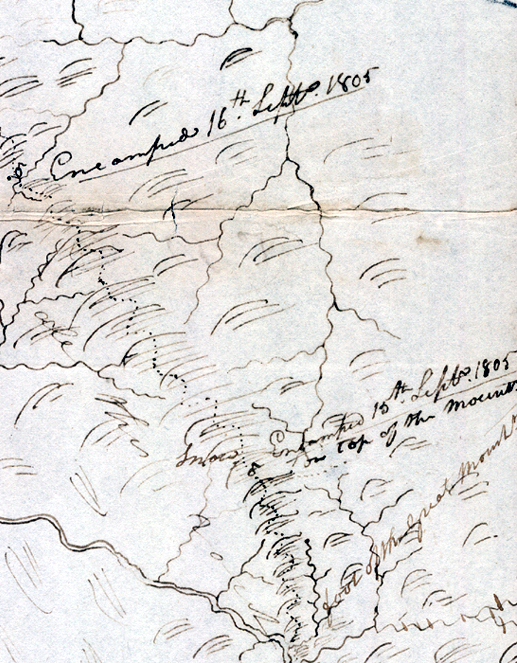 Encamped 16th Septr. 1805
Encamped 15th Septr. 1805
on top of the Mount
Snow
foot of the great Mount